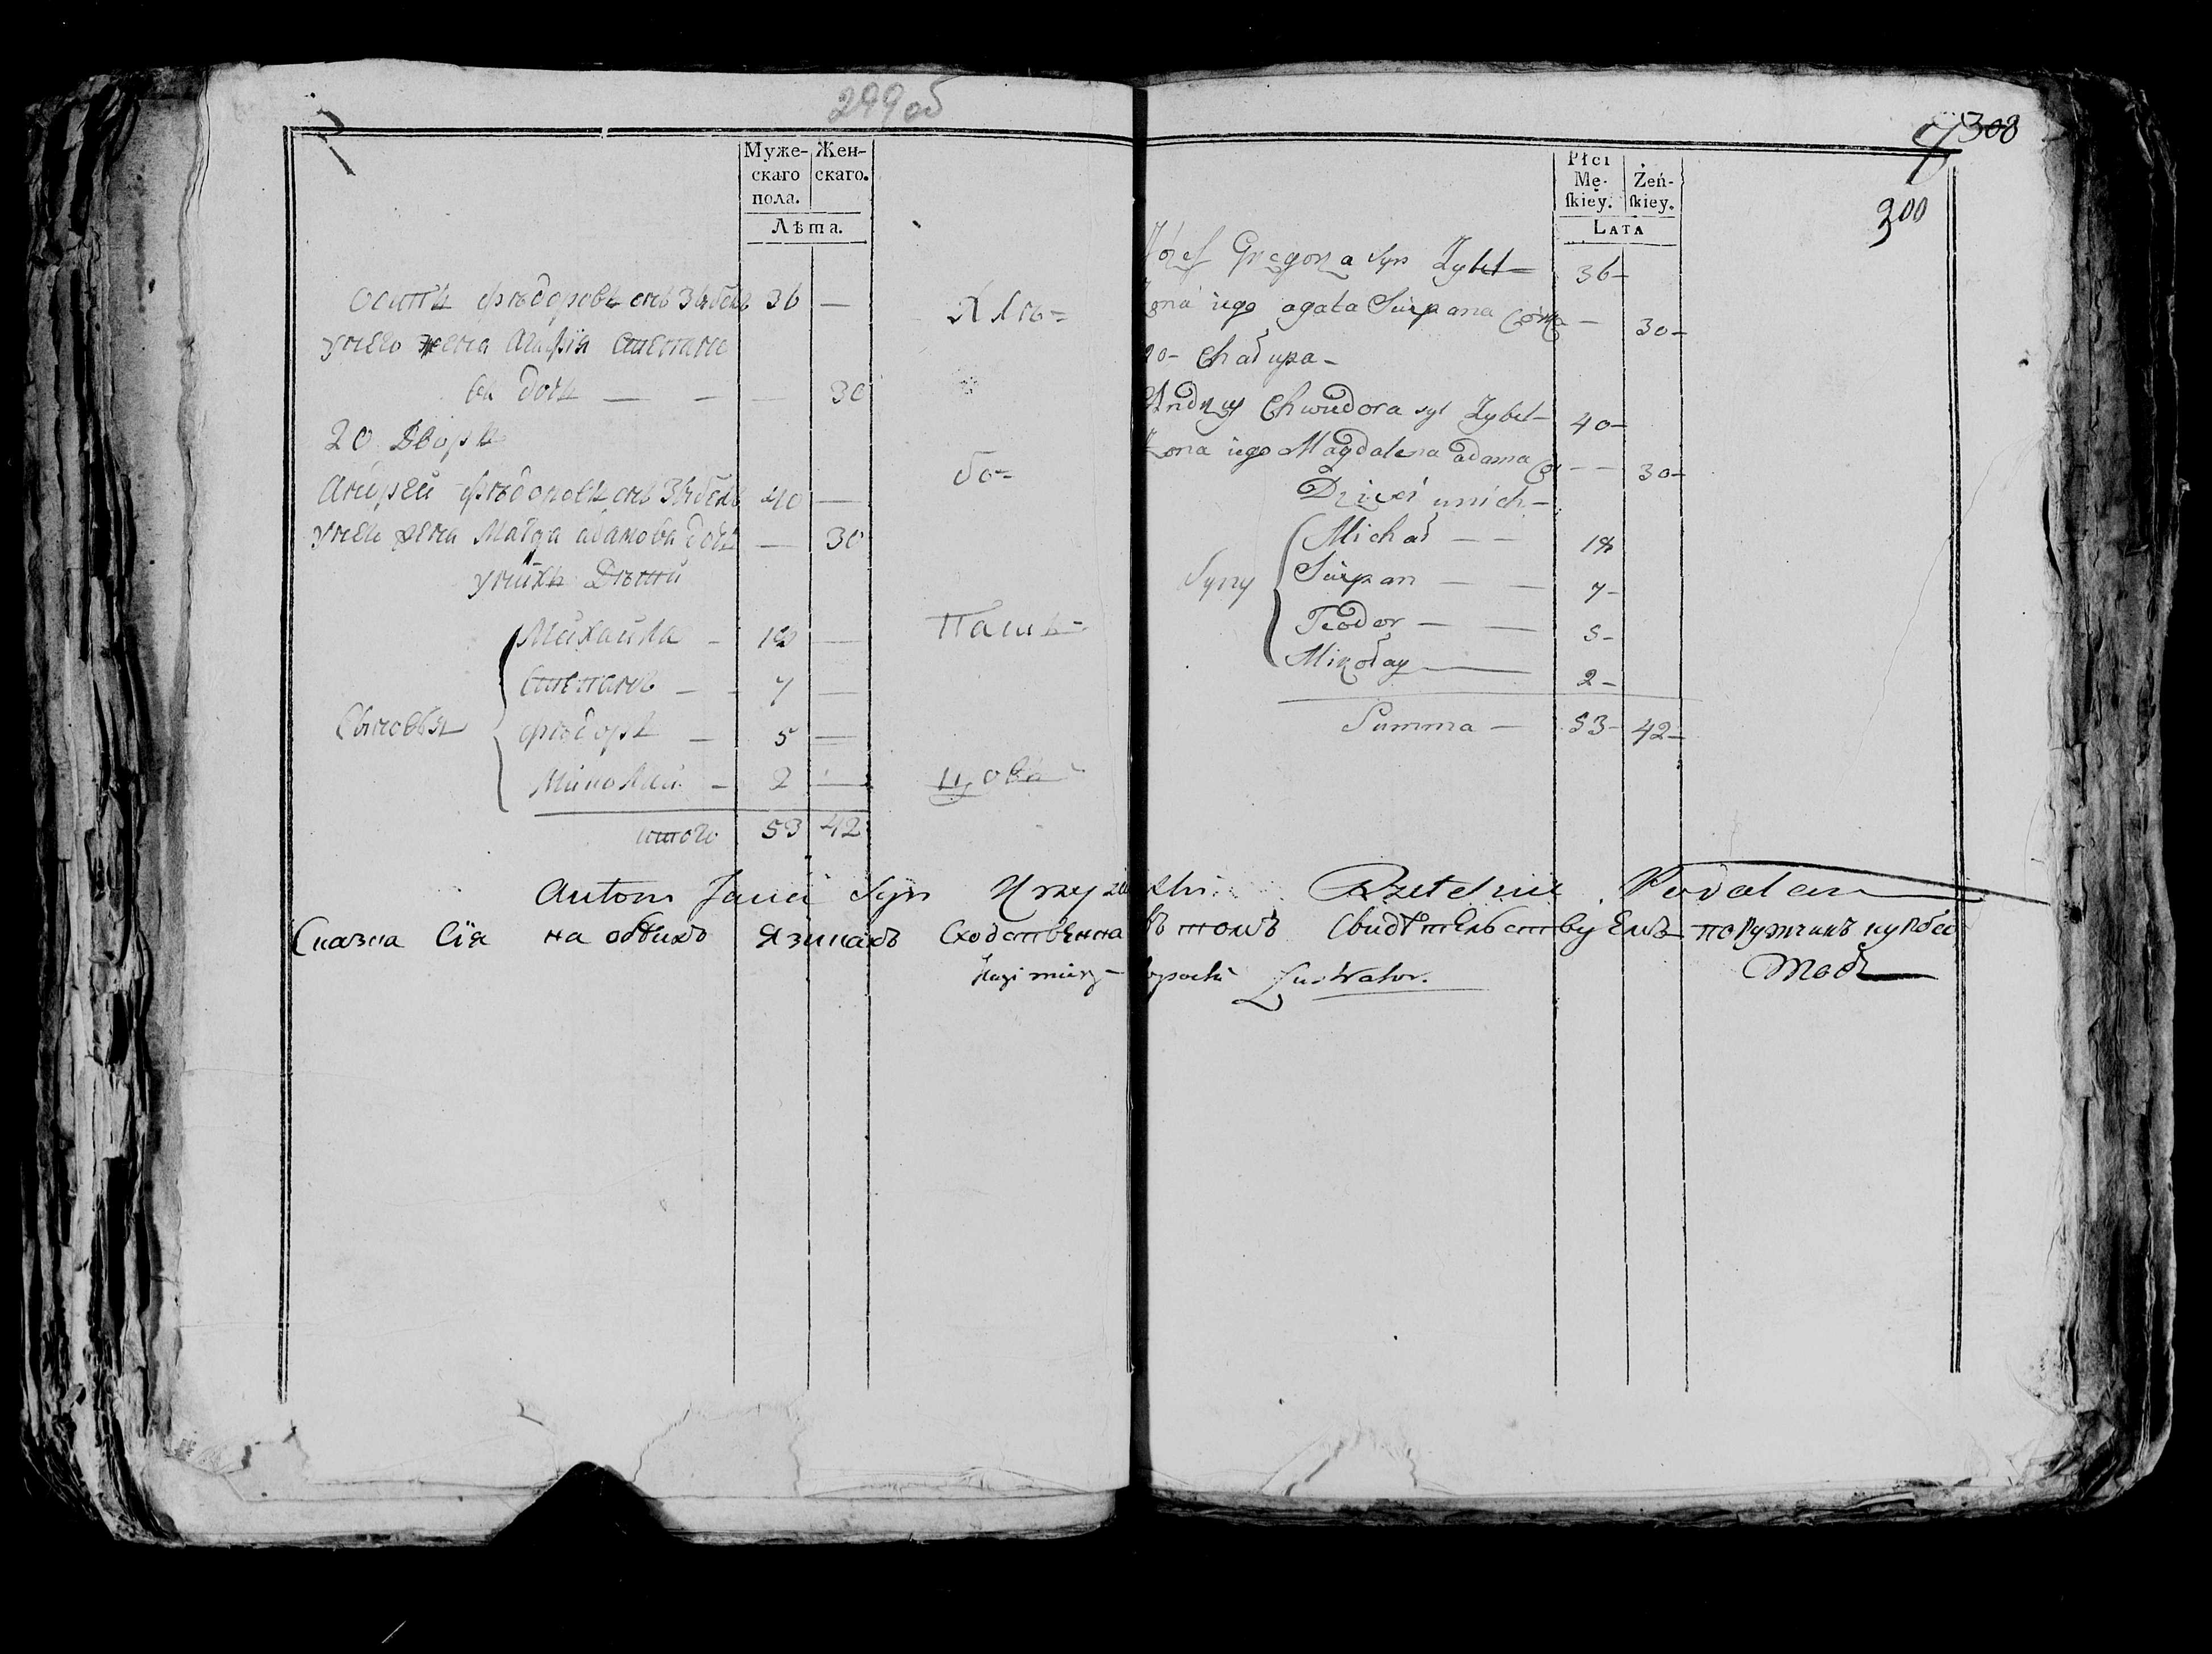 299об
Муже-
скаго
пола.
Жен-
скаго.
Лѣта.
Осипъ Фѣдоровъ снъ Зыбелъ 36 —
Унего жена Агафія Степано
ва дочь — — — 30
20 Дворъ
Андрей Фѣдоровъ снъ Зыбелъ 40 —
Унего жена Магда адамова дочь — 30
унихъ Дѣти
Михайла — 18 —
Степанъ — 7 —
Сыновья
Фѣдоръ — 5 —
Миколай — 2 —
итого 53 42
бо-
308
300
Płci
Mę-
skiey.
Żeń-
skiey.
Lata
Józef Gregorza syn Zybel 36-
Żona iego agata Sciepana 30-
20- Chałupa-
Andrzey Chwiedora syn Zybel- 40-
Żona iego Magdalena adama 30-
Dzieci u nich-
Michał — — 18
Sciepan — — 7-
Syny
Teodor — — 5-
Mikołay — 2-
Summa — 53- 42-
Antoni Jana Syn Rzetelnie Podałem
Сказка Сія на обѣихъ Языкахъ Сходственна въ томъ Свидѣтельствуемъ
Kazimierz Lustrator.